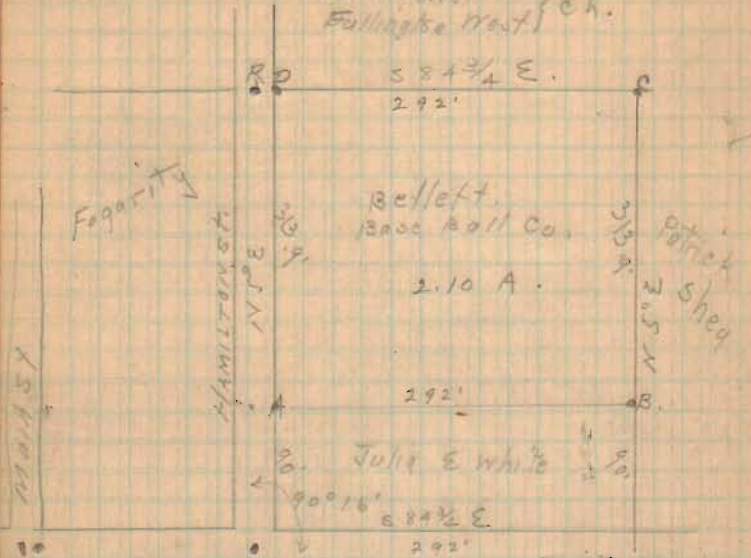 Fullington West
Ch.
R D
S 84 3/4 E.
C
292'
Fogarity
HAMILTON ST.
N 5° E
313.9.
Bellef't.
Base Ball Co.
2.10 A.
313.9.
N 5° E
Patrick
Shea
MAIN ST
A
292'
B.
90.
Julia E White
90.
90° 16'
S 84 1/2 E
292'